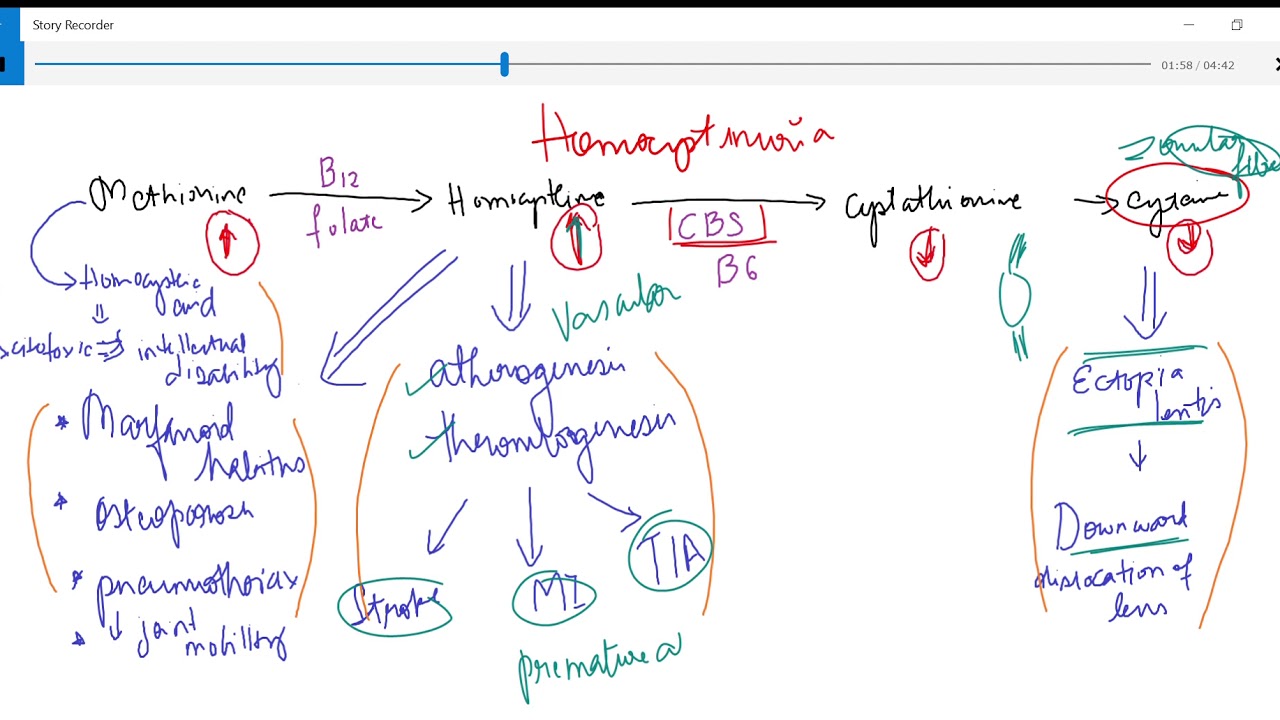 Story Recorder
01:58 / 04:42
Homocyptinuria
Zonular
fibre
Methionine
B12
folate
Homocysteine
CBS
B6
Cystathionine
Cysteine
Homocysteic
acid
intellectual
disability
Vascular
* Marfanoid
habitus
* osteoporosis
* pneumothorax
* ↓ joint
mobility
atherogenesis
thrombogenesis
Stroke
MI
TIA
premature a
Ectopia
lentis
Downward
dislocation of
lens